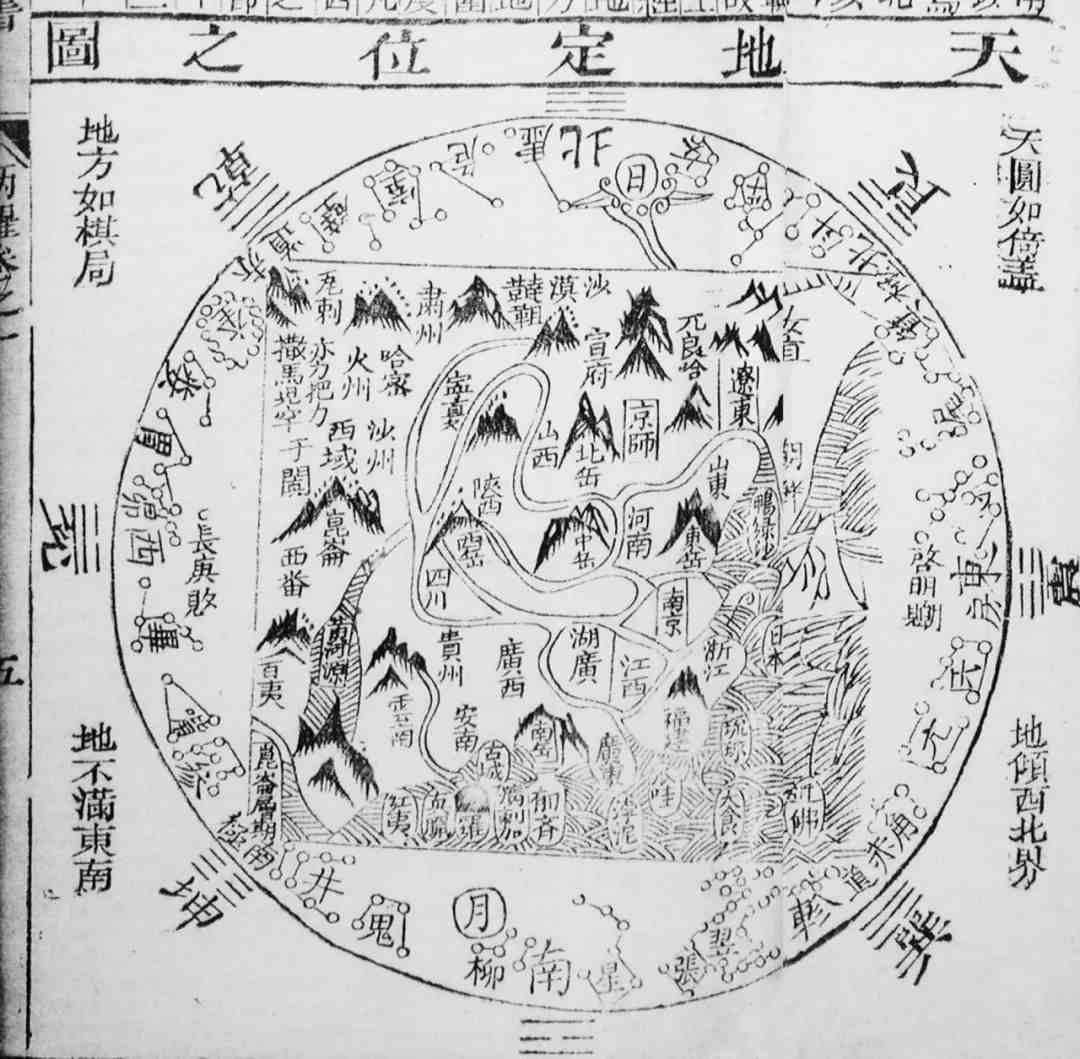 天地定位之圖
天圓如倍蓋
地方如棋局
地傾西北界
地不滿東南
乾
兌
坤
巽
北
日
女
斗
虛
危
室
壁
赤道
奎
婁
胃
昴
西
畢
長庚
觜
參
井
鬼
月
柳
南
星
張
翼
軫
赤道
角
亢
氐
房
東
啓明
尾
箕
北極
南極
沙漠
韃靼
肅州
瓦剌
女直
兀良哈
宣府
哈密
火州
亦力把力
撒馬兒罕
遼東
京師
北岳
山西
寧夏
沙州
西域
于闐
山東
鴨綠
陝西
河南
東岳
中岳
西岳
崑崙
西番
四川
南京
日本
浙江
江西
湖廣
廣西
貴州
百夷
云南
安南
南岳
福建
琉球
廣東
古城
紅夷
大食